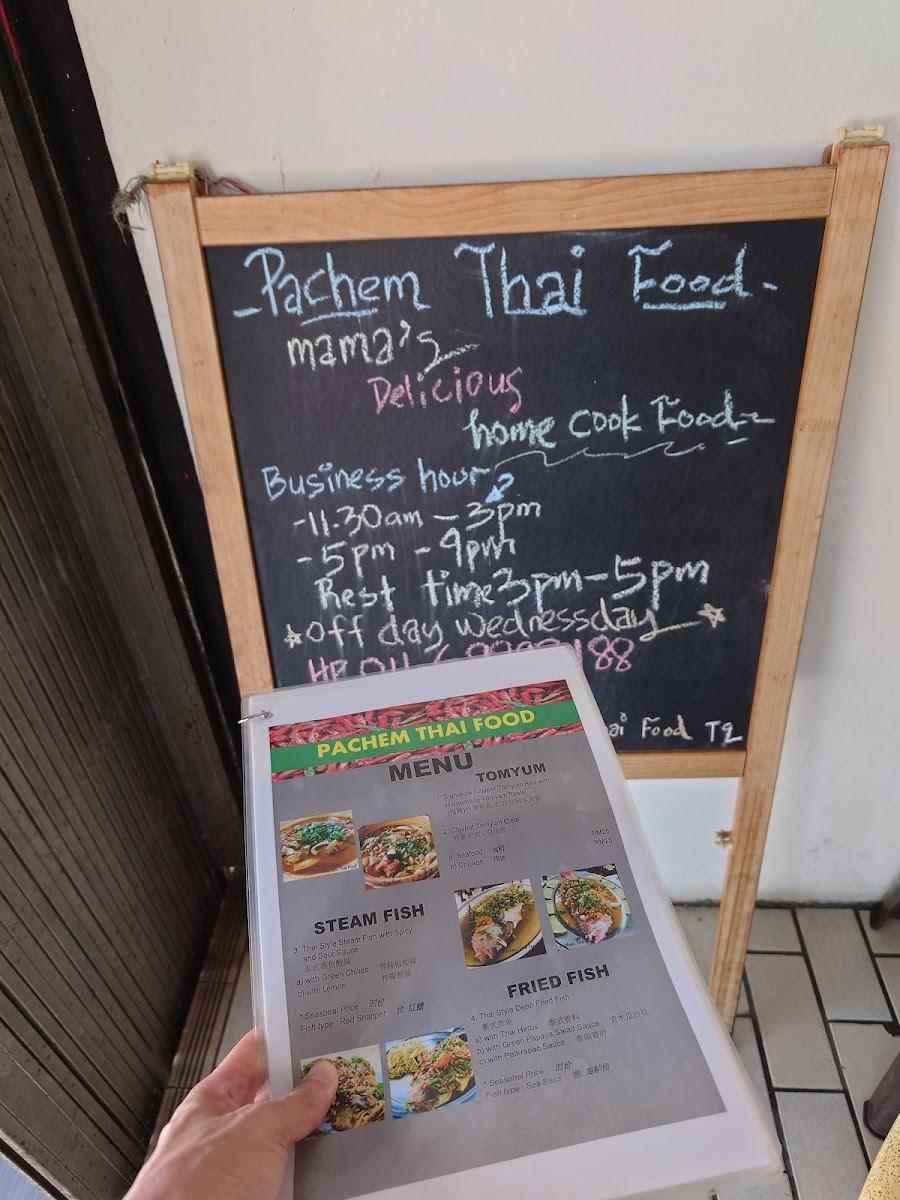 -Pachem Thai Food-
mama's
Delicious
home cook Food~
Business hour
-11.30am - 3pm
-5pm - 9pm
Rest time 3pm-5pm
off day Wednessday
HP 011-6 188
Thai Food TQ
PACHEM THAI FOOD
MENU
TOMYUM
1. Signature Claypot Tomyum Red with
Homemade Tomyam Paste
2. Claypot Tomyum Clear
RM25
a) Seafood 海鲜
RM25
b) Chicken
STEAM FISH
3. Thai Style Steam Fish with Spicy
and Sour Sauce
a) with Green Chilies
b) with Lemon
* Seasonal Price 时价
Fish type : Red Snapper 鱼: 红鰽
FRIED FISH
4. Thai Style Deep Fried Fish
泰式炸鱼
a) with Thai Herbs 泰式香料
b) with Green Papaya Salad Sauce 青木瓜沙拉
c) with Patkrapao Sauce 泰国香叶
* Seasonal Price 时价
Fish type : Sea Bass 鱼: 海鲈鱼